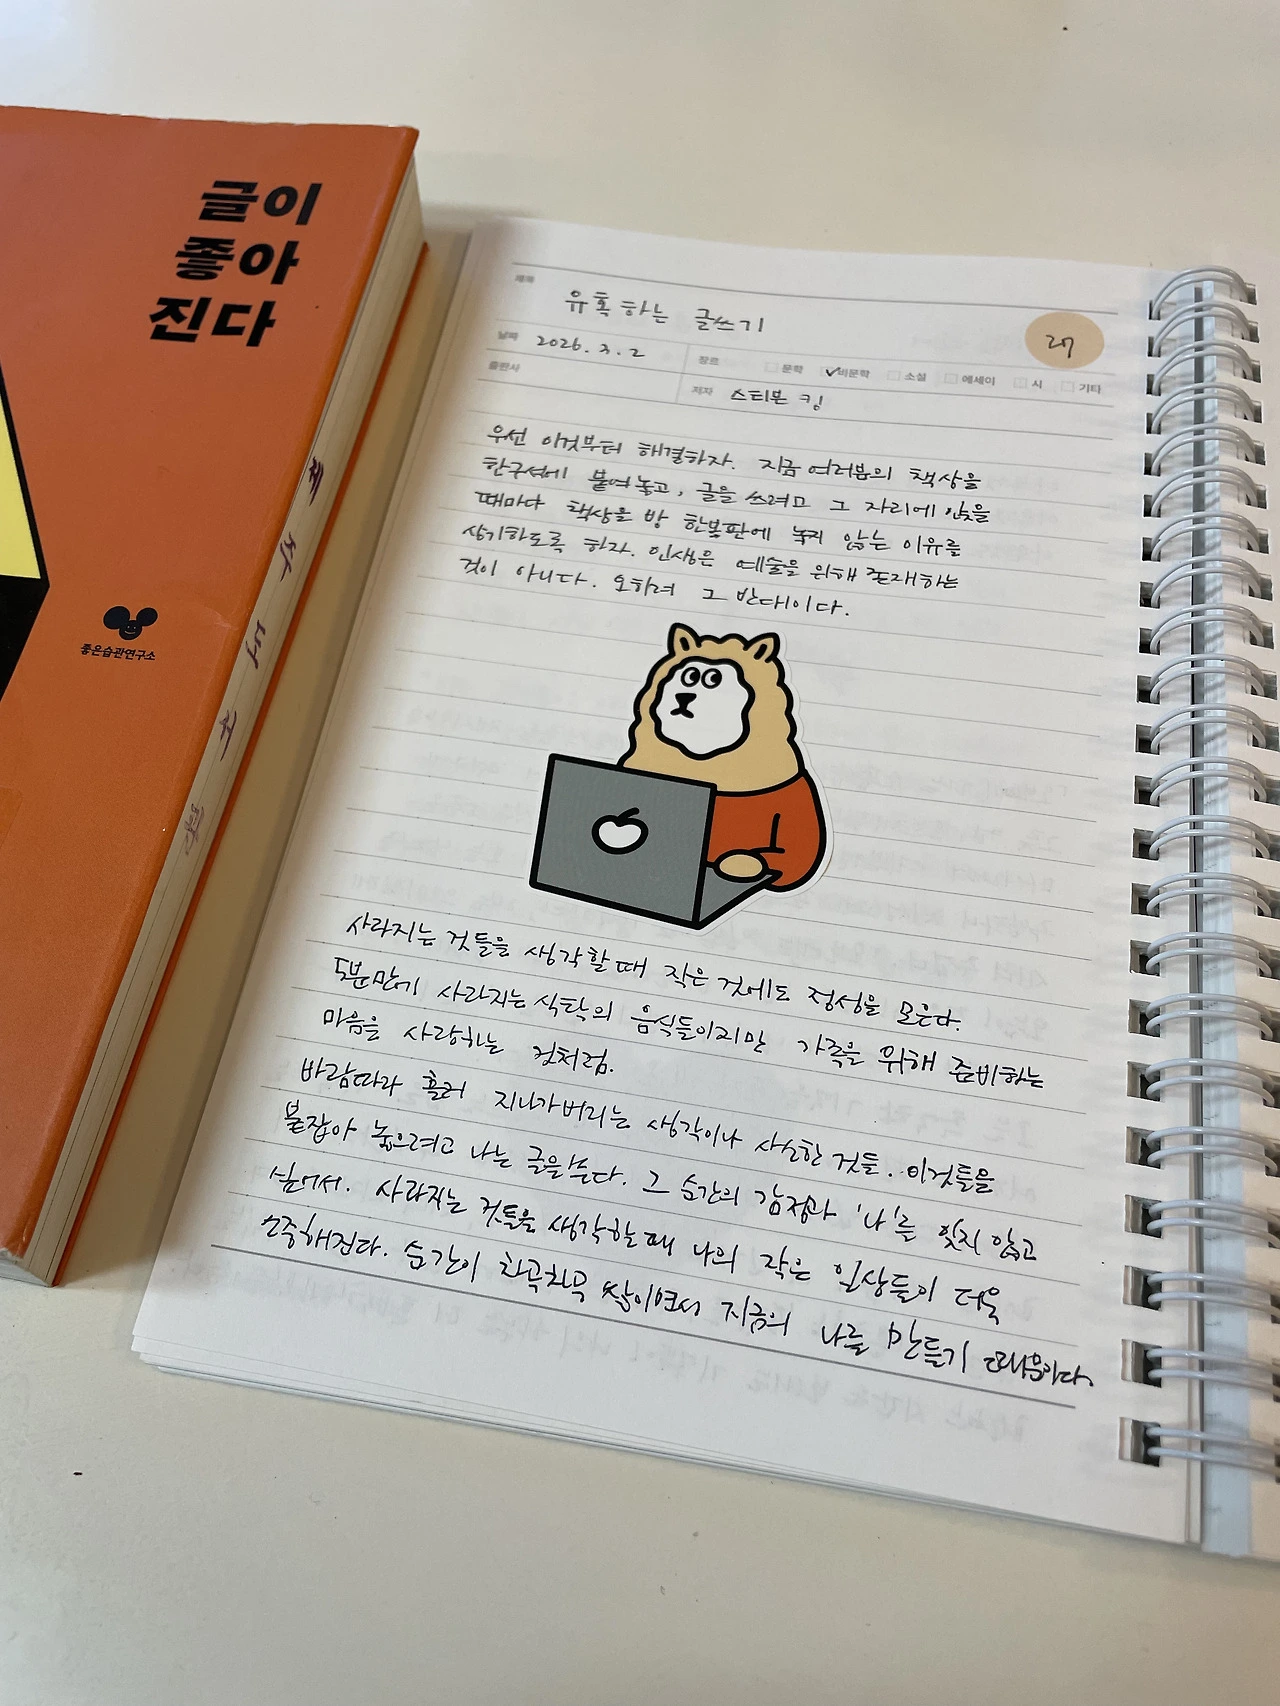 글이
좋아
진다
좋은습관연구소
제목
유혹하는 글쓰기
27
날짜 2026. 3. 2
장르 문학 비문학 소설 에세이 시 기타
출판사
저자 스티븐 킹
우선 이것부터 해결하자. 지금 여러분의 책상을
한구석에 붙여놓고, 글을 쓰려고 그 자리에 앉을
때마다 책상을 방 한복판에 놓지 않는 이유를
상기하도록 하자. 인생은 예술을 위해 존재하는
것이 아니다. 오히려 그 반대이다.
사라지는 것들을 생각할 때 작은 것에도 정성을 모은다.
5분만에 사라지는 식탁의 음식들이지만 가족을 위해 준비하는
마음을 사랑하는 것처럼.
바람따라 흘러 지나가버리는 생각이나 사소한 것들. 이것들을
붙잡아 놓으려고 나는 글을 쓴다. 그 순간의 감정과 '나'를 잊지 않고
싶어서. 사라지는 것들을 생각할 때 나의 작은 일상들이 더욱
소중해진다. 순간이 차곡차곡 쌓이면서 지금의 나를 만들기 때문이다.